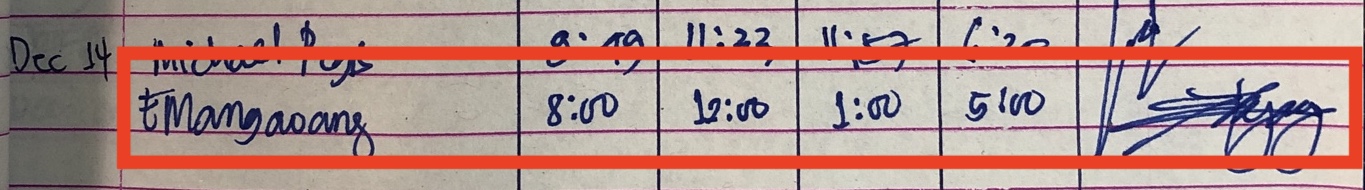 Dec 14 Michael 8:49 11:23 11:57
EMangaoang 8:00 12:00 1:00 5:00